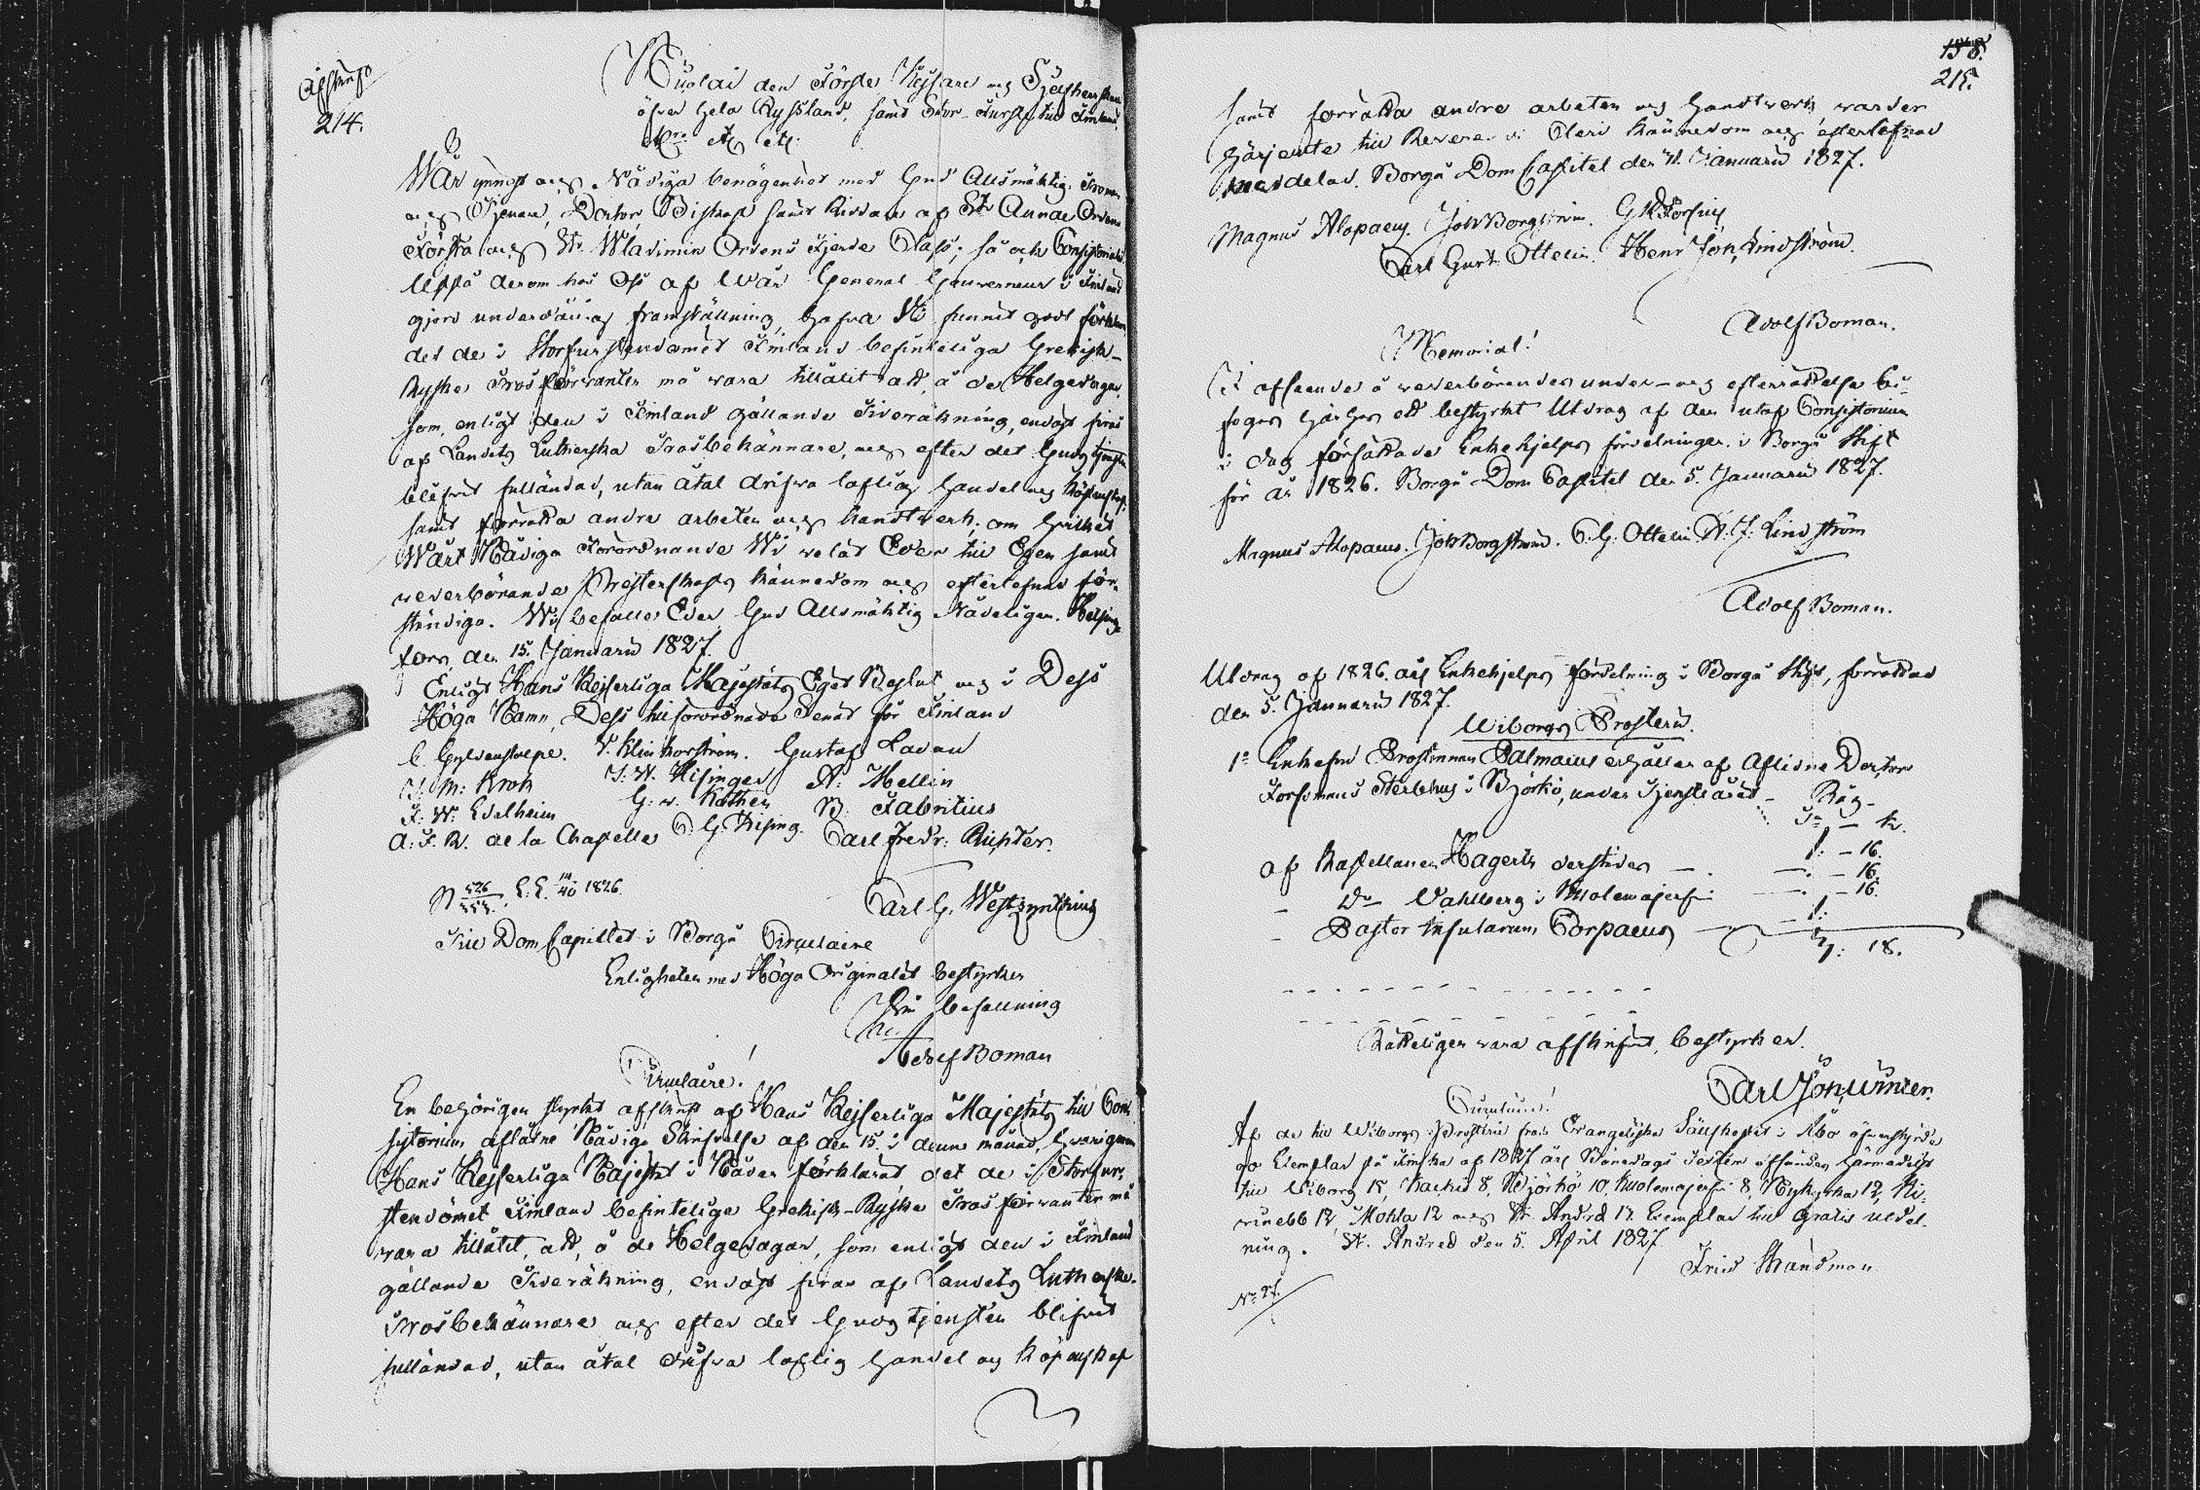 Afskrift
214.
Nicolai den Förste Kejsare och Sjelfherrskare
öfver hela Ryssland, samt Stor-Furste till Finland,
etc. etc. etc.
Wår ynnest och Nådiga benägenhet med Gud Allsmäktig. Troman
och Tjenare, Doctor, Biskop samt Riddare af St Annæ Ordens
Första och St. Wladimir Ordens Fjerde Class; så och Consistoriales
Uppå derom hos Oss af Wår General Gouverneur i Finland
gjord underdånig framställning, hafva Wi funnit godt förklara,
det de i Storfurstendömet Finland befinteliga Grekisk-
Ryske Trosförvanter må vara tillåtit att å de Helgedagar,
som, enligt den i Finland gällande Tideräkning, endast firas
af Landets Lutherska Trosbekännare, och efter det Gudstjensten
blifvit fulländad, utan åtal drifva laflig handel och köpenskap,
samt förrätta andra arbeten och handtverk. om hvilket
Wårt Nådiga Förordnande Wi velat Eder till Egen samt
vederbörande Presterskaps kännedom och efterlefnad för-
ständiga. Wi befalle Eder Gud Allsmäktig Nådeligen. Helsing-
fors, den 15. Januarii 1827.
Enligt Hans Kejserliga Majestäts Eget Beslut och i Dess
Höga Namn, Dess tillförordnade Senat för Finland
C. Gyldenstolpe. V. Klinckowström. Gustaf Ladau
I: M: Krok I. W. Hisinger A: Mellin
F: W: Edelheim G: v. Kothen B: Fabritius
A: F. R. de la Chapelle C. G. Hising. Carl Fredr: Richter.
N 526/557. E. E. 14/40 1826.
Carl G. Westzynthius
Till DomCapitlet i Borgå Circulaire
Enligheten med Höga Originalet bestyrker
På befallning
Adolf Boman
Circulaire!
En behörigen styrkt afskrift af Hans Kejserliga Majestäts till Con-
sistorium aflåtne Nådiga Skrifvelse af den 15. i denne månad, hvarigenom
Hans Kejserliga Majestät i Nåder förklarat, det de i Storfur-
stendömet Finland befintelige Grekisk-Ryske Trosförvanter må
vara tillåtit, att, å de Helgedagar, som enligt den i Finland
gällande Tideräkning, endast firas af Landets Lutherska
Trosbekännare och efter det Gudstjensten blifvit
fulländad, utan åtal drifva laflig handel och köpenskap
158.
215.
samt förrätta andra arbeten och handtverk varder
härjemte till Reverendi Cleri kännedom och efterlefnad
meddelad. Borgå DomCapitel den 31. Januarii 1827.
Magnus Alopaeus. Joh Borgström. G A Forsius
Carl Gust: Ottelin. Henr Joh, Lindström.
Adolf Boman.
Memorial!
I afseende å vederbörandes under- och efterrättelse bi-
fogas härhos ett bestyrkt Utdrag af den utaf Consistorium
i dag författade Enkehjelps fördelningen i Borgå Stift
för år 1826. Borgå Dom Capitel den 5. Januarii 1827.
Magnus Alopaeus. Joh Borgström. C. G. Ottelin. H. J. Lindström
Adolf Boman.
Utdrag af 1826. års Enkehjelps fördelning i Borgå Stift, förrättad
den 5. Januarii 1827.
Wiborgs Prosteri.
1º Enkefru Prostinnan Palmaeus erhåller af Aflidne Doctor
Forsmans Sterbhus i Björkö, under Tjensteåret - Råg-
Tr - K.
1: - 16.
af Kapellanen Hagerts dersteders - - 16.
- Dº Wahlberg i Kuolemajerfvi - - 16
- Pastor Insularum Corpaeus 1:
7: 18.
Rätteligen vara afskrifvet, bestyrker.
Carl Joh, Winter.
Circulaire!
Af de till Wiborgs Prosteri från Evangeliska Sällskapet i Åbo öfverstyrda
90 Exemplar på Finska af 1827 års Bönedags Texter afsändes härmedelst
till Wiborg 15, Kackis 8, Björkö 10, Kuolemajerfvi 8, Nykyrka 12, Ki-
vinebb 12, Mohla 12 och St. Andræ 12 Exemplar till gratis utdel-
ning. St. Andreæ den 5. April 1827.
Fried Strandman.
No: 27.